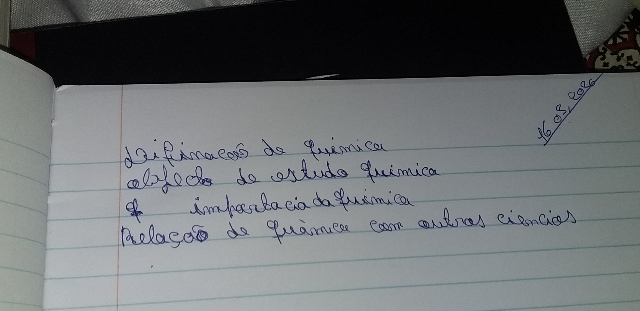 16.03.2026
Difinacoõ de química
objecto de estudo química
importacia da química
Relaçoõ de química com outras ciencias